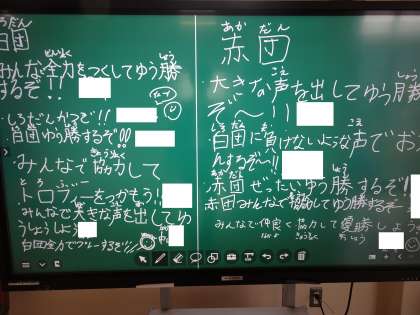 白団
みんな全力をつくしてゆう勝
するぞ!!
しろだんかつぞ!!
白団ゆう勝するぞ!!
みんなで協力して
トロフィーをつかもう!!
みんなで大きな声を出してゆ
うしょうしよう
白団全力で
あかだん
赤団
大きな声を出してゆう勝
ぞ〜!!
白団に負けないような声でお
んするぞ〜!!
赤団ぜったいゆう勝するぞ!!
赤団みんなで協力してゆう勝するぞー
みんなで仲良く協力して優勝しよう